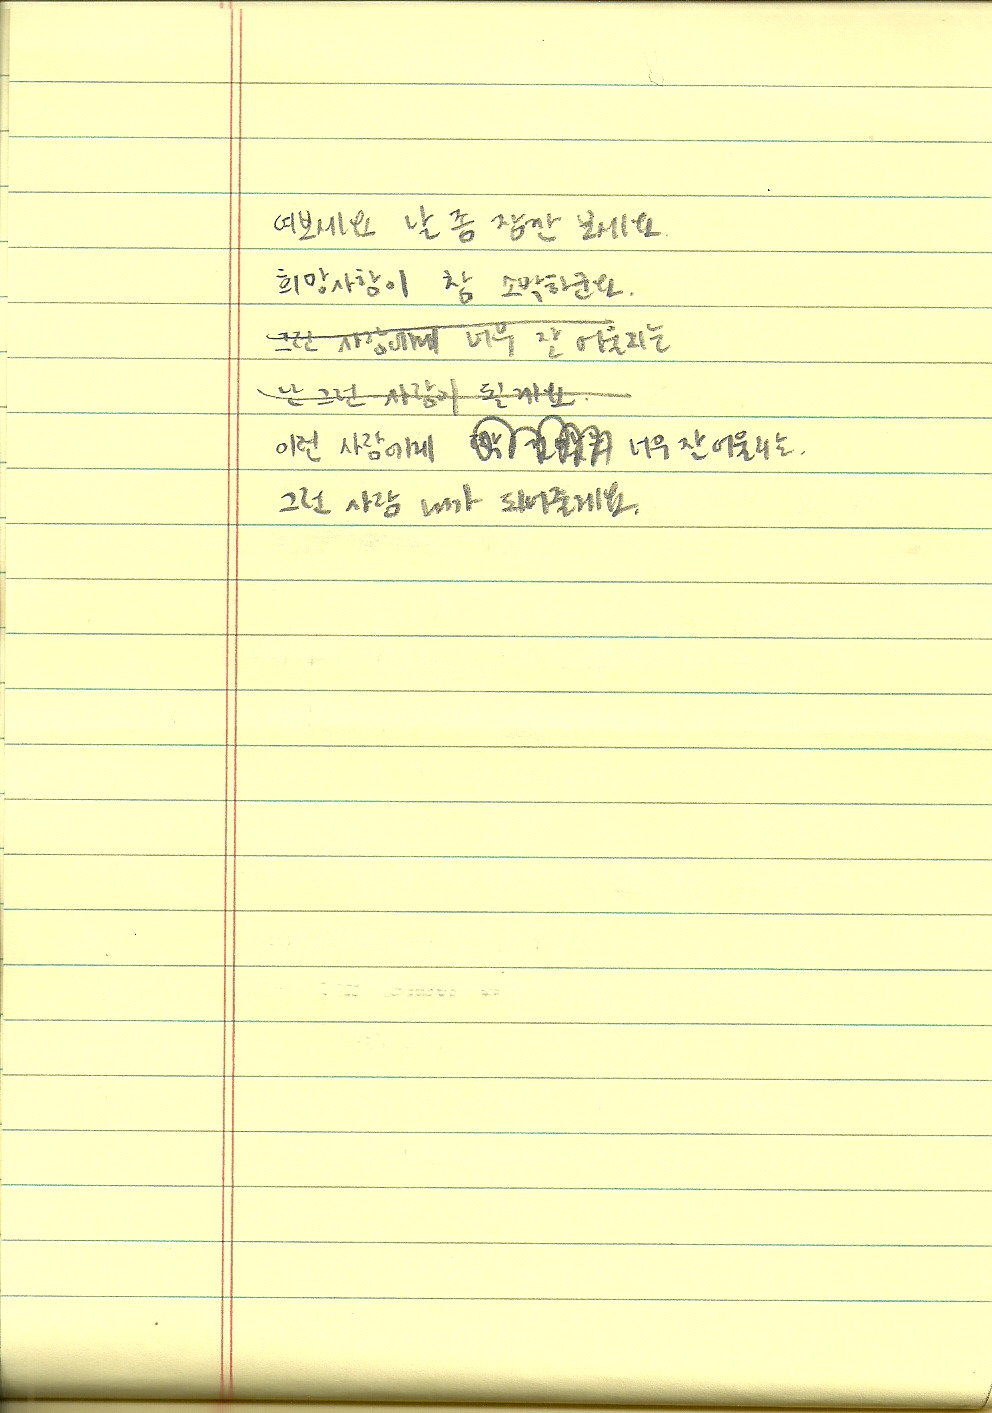 여보세요 날 좀 잠깐 보세요.
희망사항이 참 소박하군요.
그런 사람에게 너무 잘 어울리는
난 그런 사람이 될께요.
이런 사람에게 너무 잘 어울리는.
그런 사람 내가 되어줄게요.